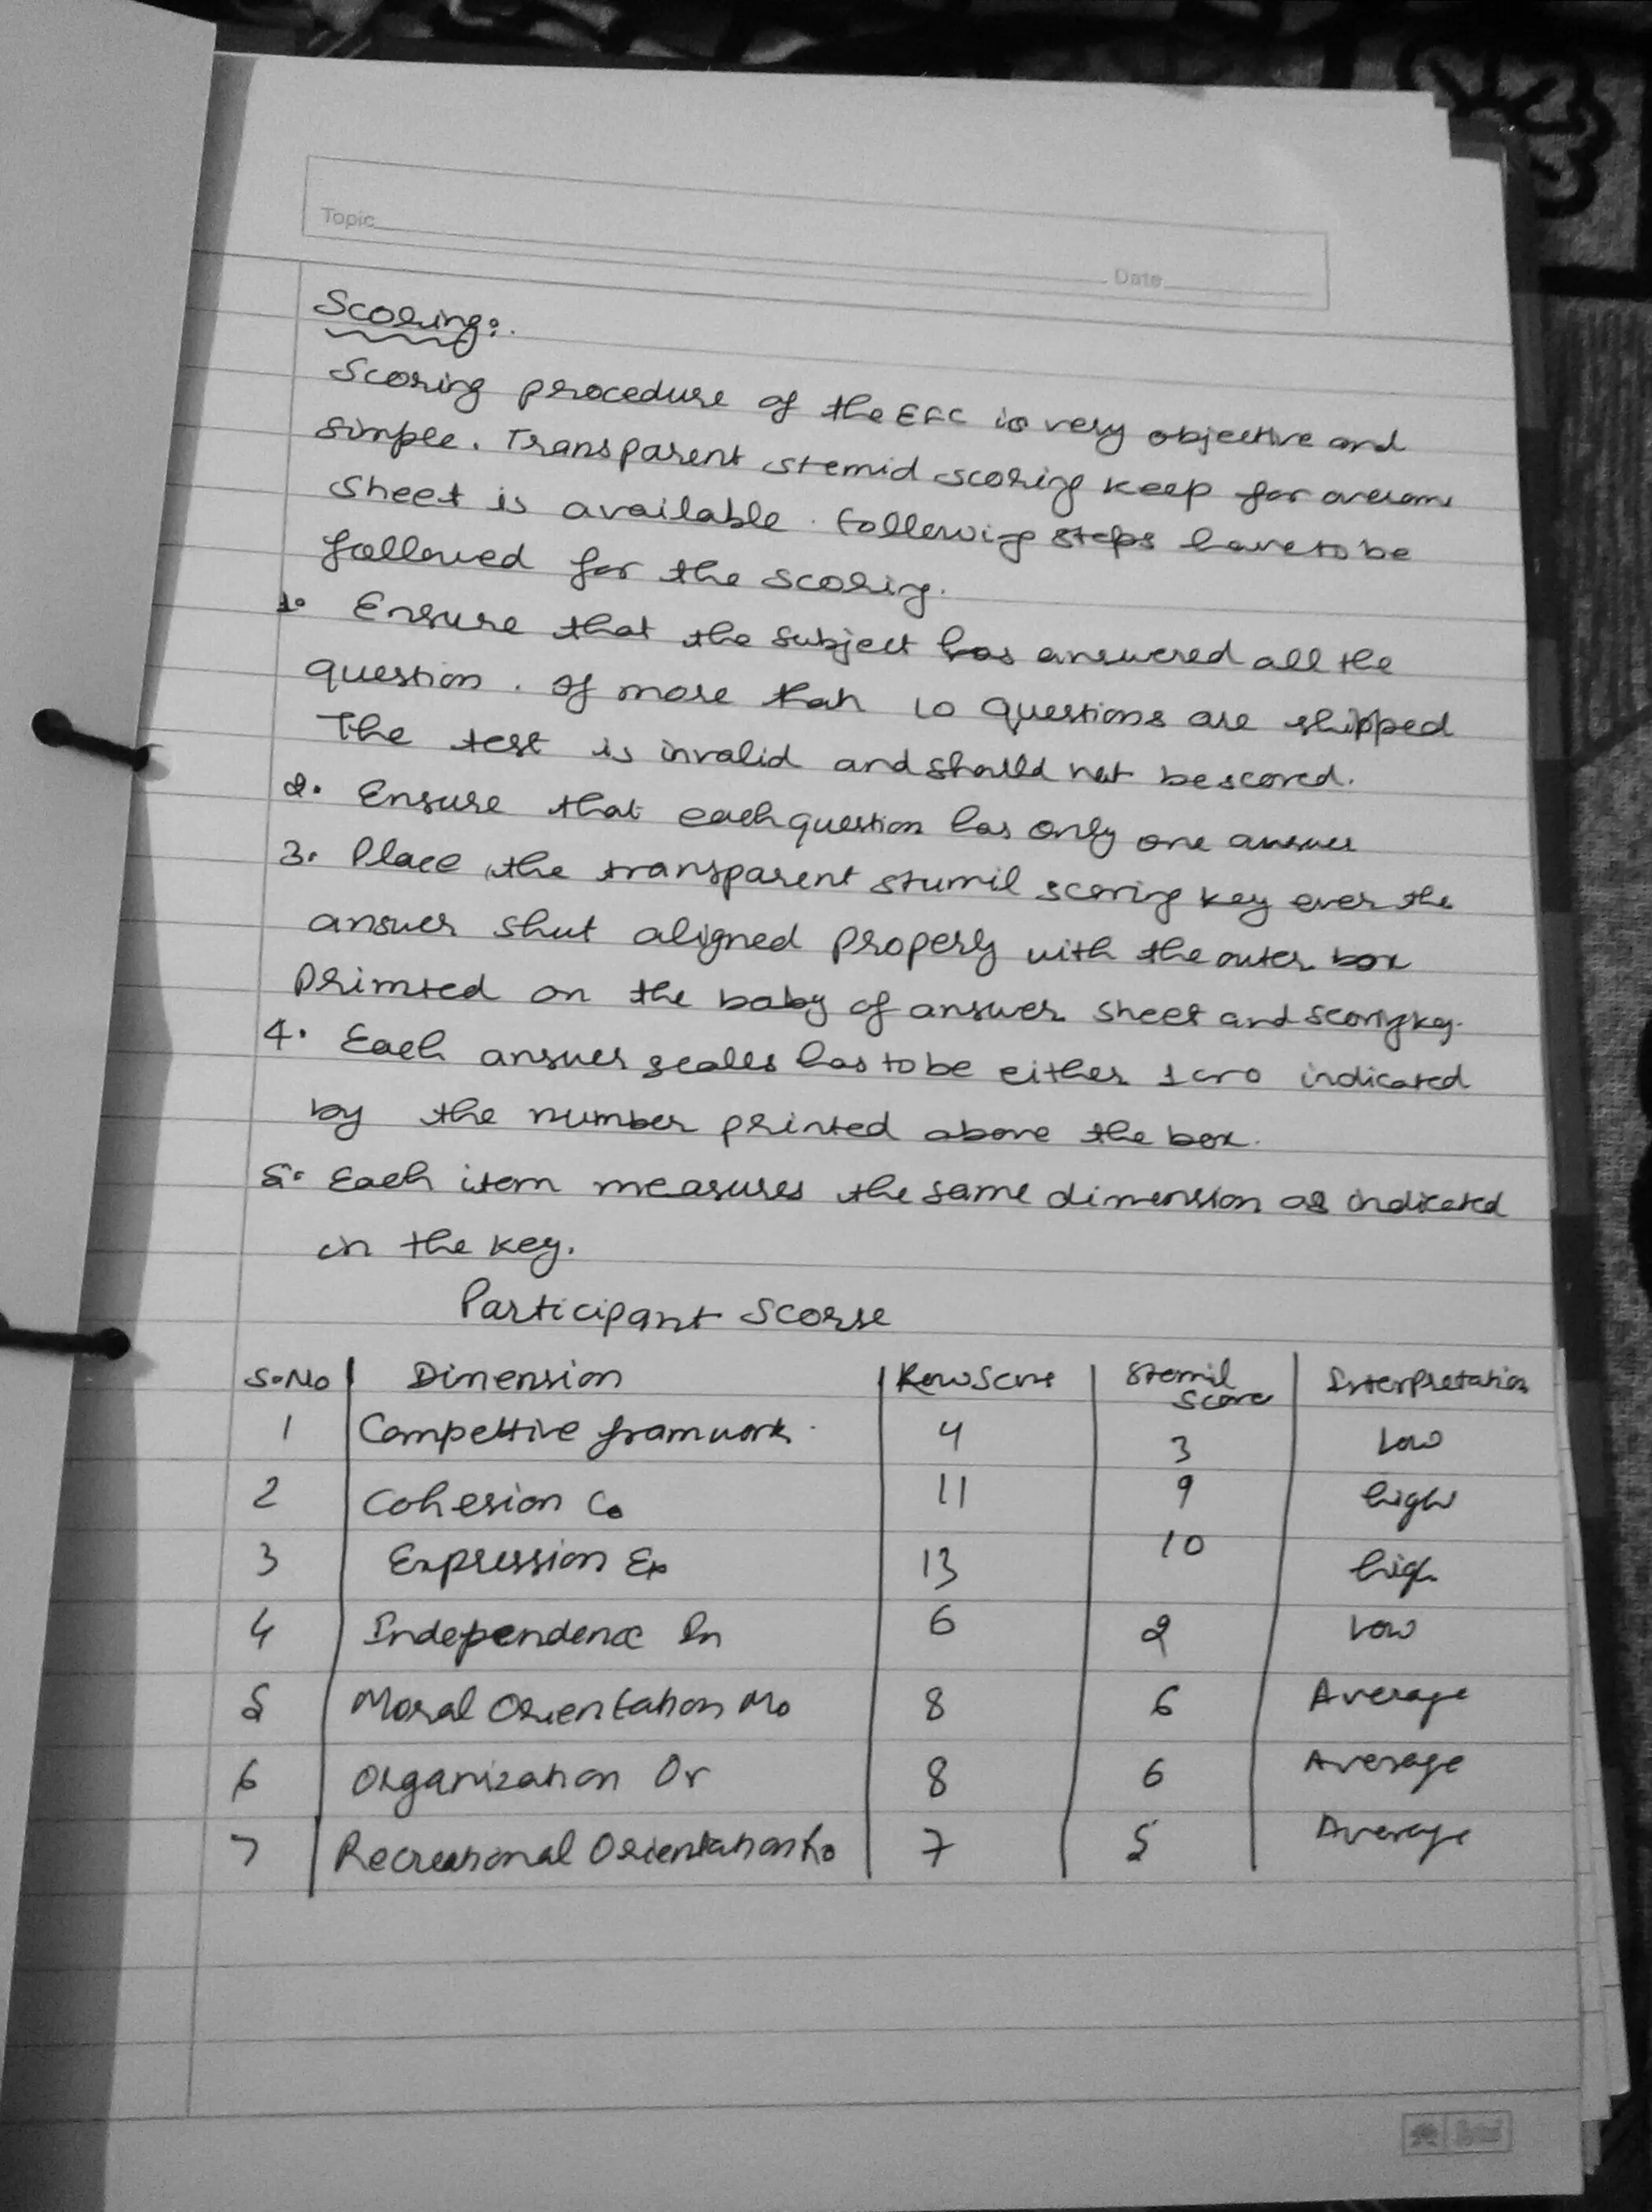 Topic
Date
Scoring:.
Scoring procedure of the EFC is very objective and
simple. Transparent stemid scoring keep for
sheet is available. following steps have to be
followed for the scoring.
1. Ensure that the subject has answered all the
question. If more than 10 questions are skipped
The test is invalid and should not be scored.
2. Ensure that each question has only one answer
3. Place the transparent stumil scoring key over the
answer shut aligned properly with the outer box
Primted on the baby of answer sheet and scoring key.
4. Each answer has to be either 1 or 0 indicated
by the number printed above the box.
5. Each item measures the same dimension as indicated
in the key.
Participant Scorse
S.No Dimension Raw Score Stemil Score Interpretation
1 Compettive framwork. 4 3 Low
2 Cohesion Co 11 9 high
3 Expression Ex 13 10 high
4 Independence In 6 2 Low
5 Moral Orientation Mo 8 6 Average
6 Organization Or 8 6 Average
7 Recreational Orientation Ro 7 5 Average